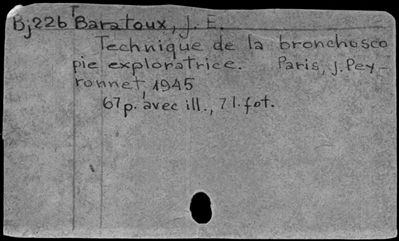 Bj22b Baratoux, J. E.
Technique de la bronchosco
pie exploratrice. Paris, J. Pey-
ronnet, 1945
67p. avec ill., 7 l. fot.